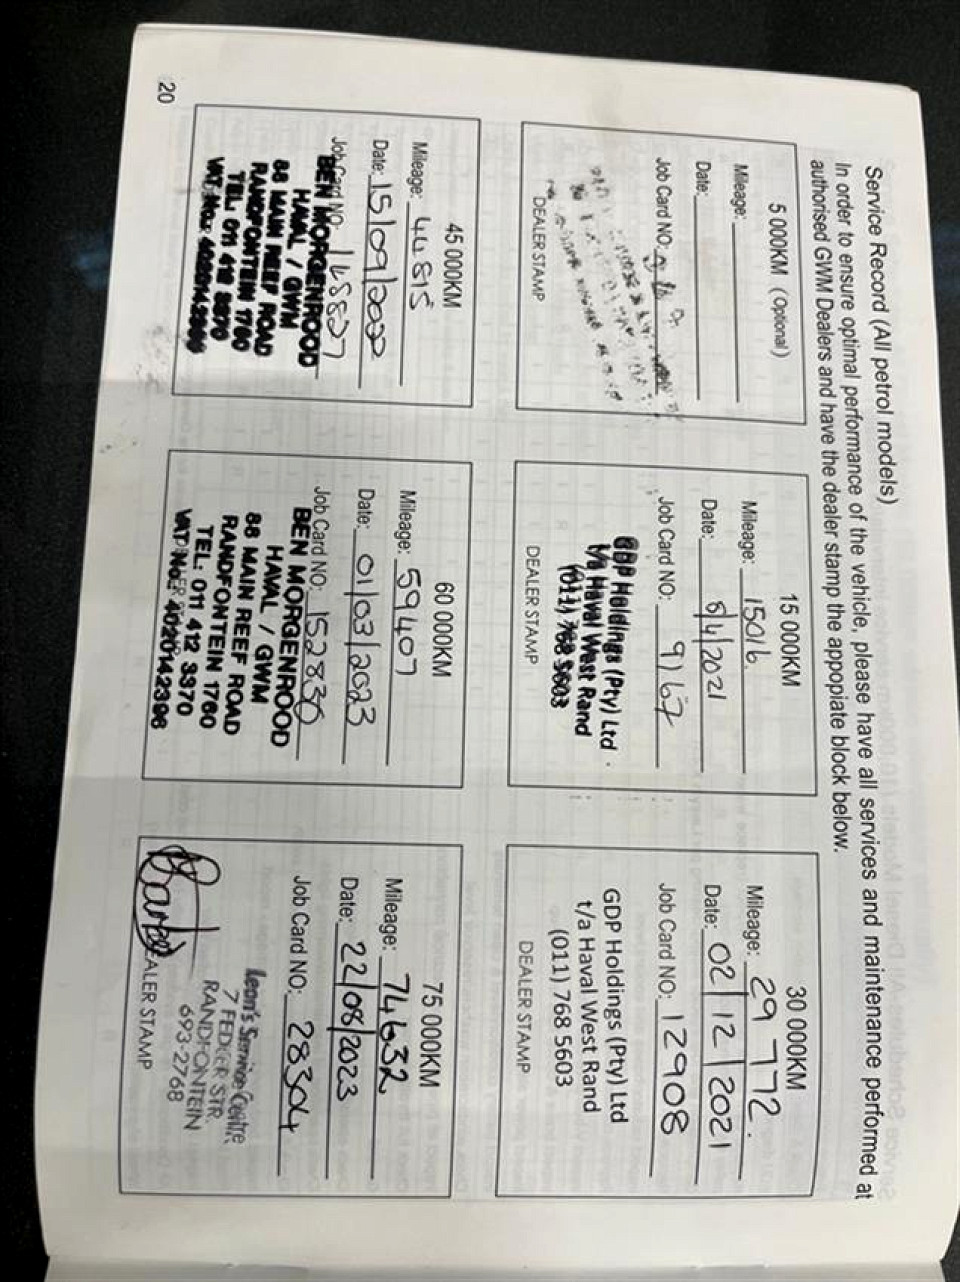 Service Record (All petrol models)
In order to ensure optimal performance of the vehicle, please have all services and maintenance performed at
authorised GWM Dealers and have the dealer stamp the appopiate block below.
5 000KM (Optional)
Mileage:
Date:
Job Card NO:
DEALER STAMP
15 000KM
Mileage: 15016
Date: 6/4/2021
Job Card NO: 9167
GDP Holdings (Pty) Ltd
t/a Haval West Rand
(011) 768 5603
DEALER STAMP
30 000KM
Mileage: 29 772.
Date: 02/12/2021
Job Card NO: 12908
GDP Holdings (Pty) Ltd
t/a Haval West Rand
(011) 768 5603
DEALER STAMP
45 000KM
Mileage: 44815
Date: 15/09/2022
Job Card NO:
BEN MORGENROOD
HAVAL / GWM
88 MAIN REEF ROAD
RANDFONTEIN 1760
TEL. 011 412 3370
VAT No.: 4020142396
60 000KM
Mileage: 59407
Date: 01/03/2023
Job Card NO: 152836
BEN MORGENROOD
HAVAL / GWM
88 MAIN REEF ROAD
RANDFONTEIN 1760
TEL. 011 412 3370
VAT No.: 4020142396
75 000KM
Mileage: 74632
Date: 22/08/2023
Job Card NO: 28304
Leon's Service Centre
7 FEDLER STR.
RANDFONTEIN
693-2768
DEALER STAMP
20